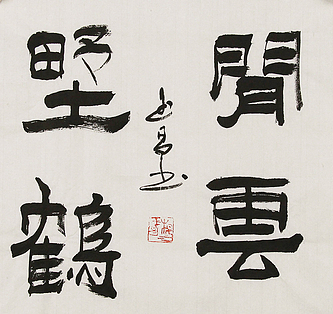 閒雲
野鶴